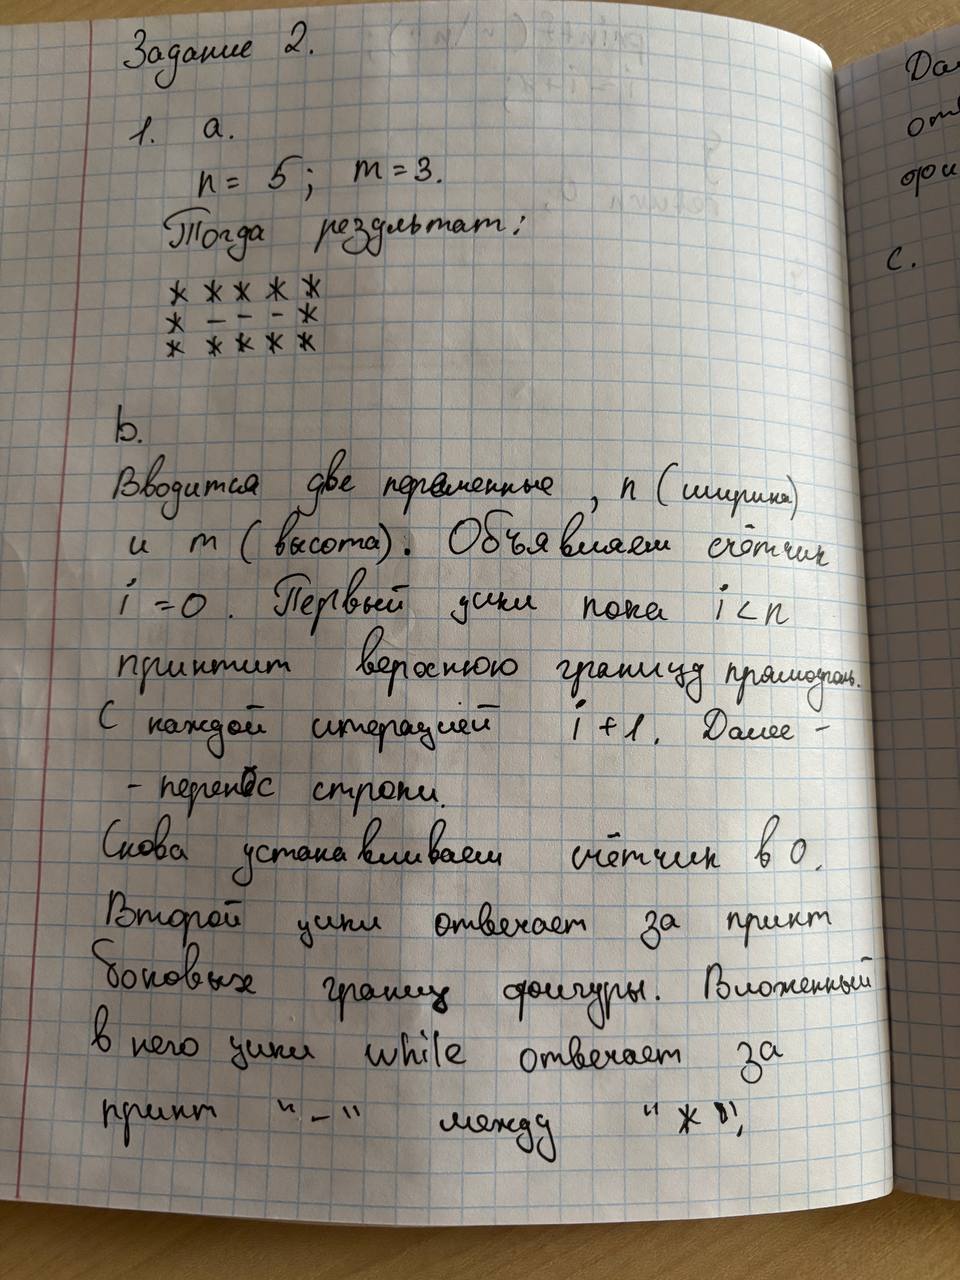 Задание 2.
1. a.
n = 5; m = 3.
Тогда результат:
* * * * *
* - - - *
* * * * *
b.
Вводится две переменные, n (ширина)
и m (высота). Объявляем счётчик
i = 0. Первый цикл пока i < n
принтит верхнюю границу прямоуголь.
С каждой итерацией i + 1. Далее -
- перенос строки.
Снова устанавливаем счётчик в 0.
Второй цикл отвечает за принт
боковых границ фигуры. Вложенный
в него цикл while отвечает за
принт "-" между "*",
Дал
отв
фи
c.